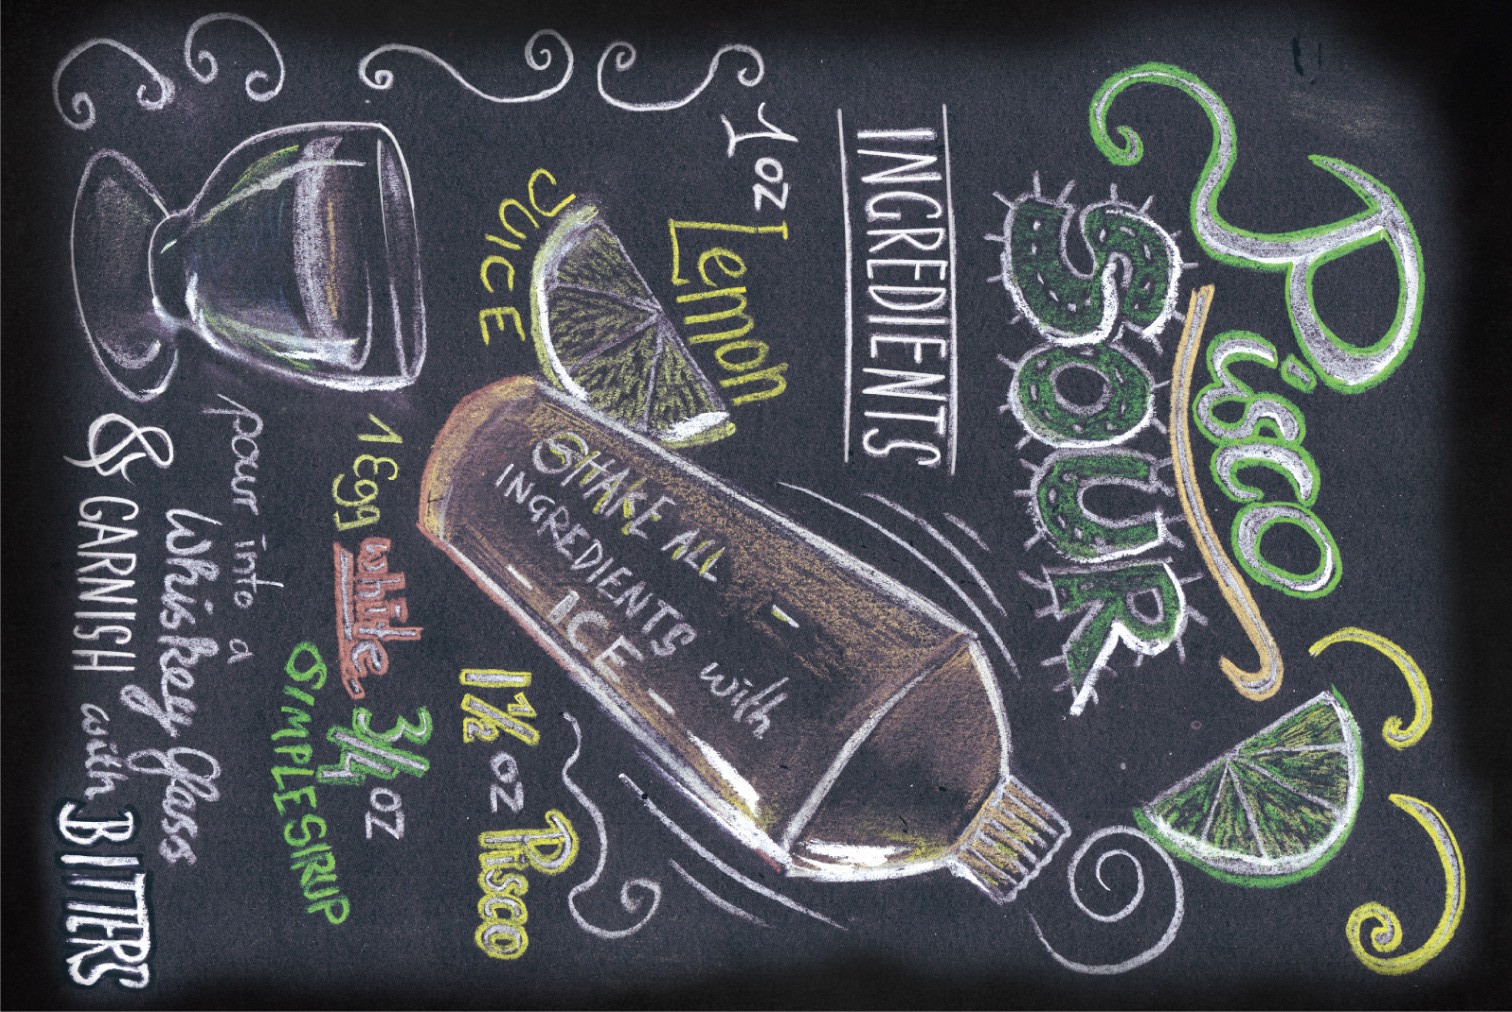 Pisco
SOUR
INGREDIENTS
1 oz
Lemon
JUICE
SHAKE ALL
INGREDIENTS with
- ICE -
1½ oz Pisco
1 Egg white
3/4 oz
SIMPLE SIRUP
pour into a
Whiskey glass
& GARNISH with BITTERS